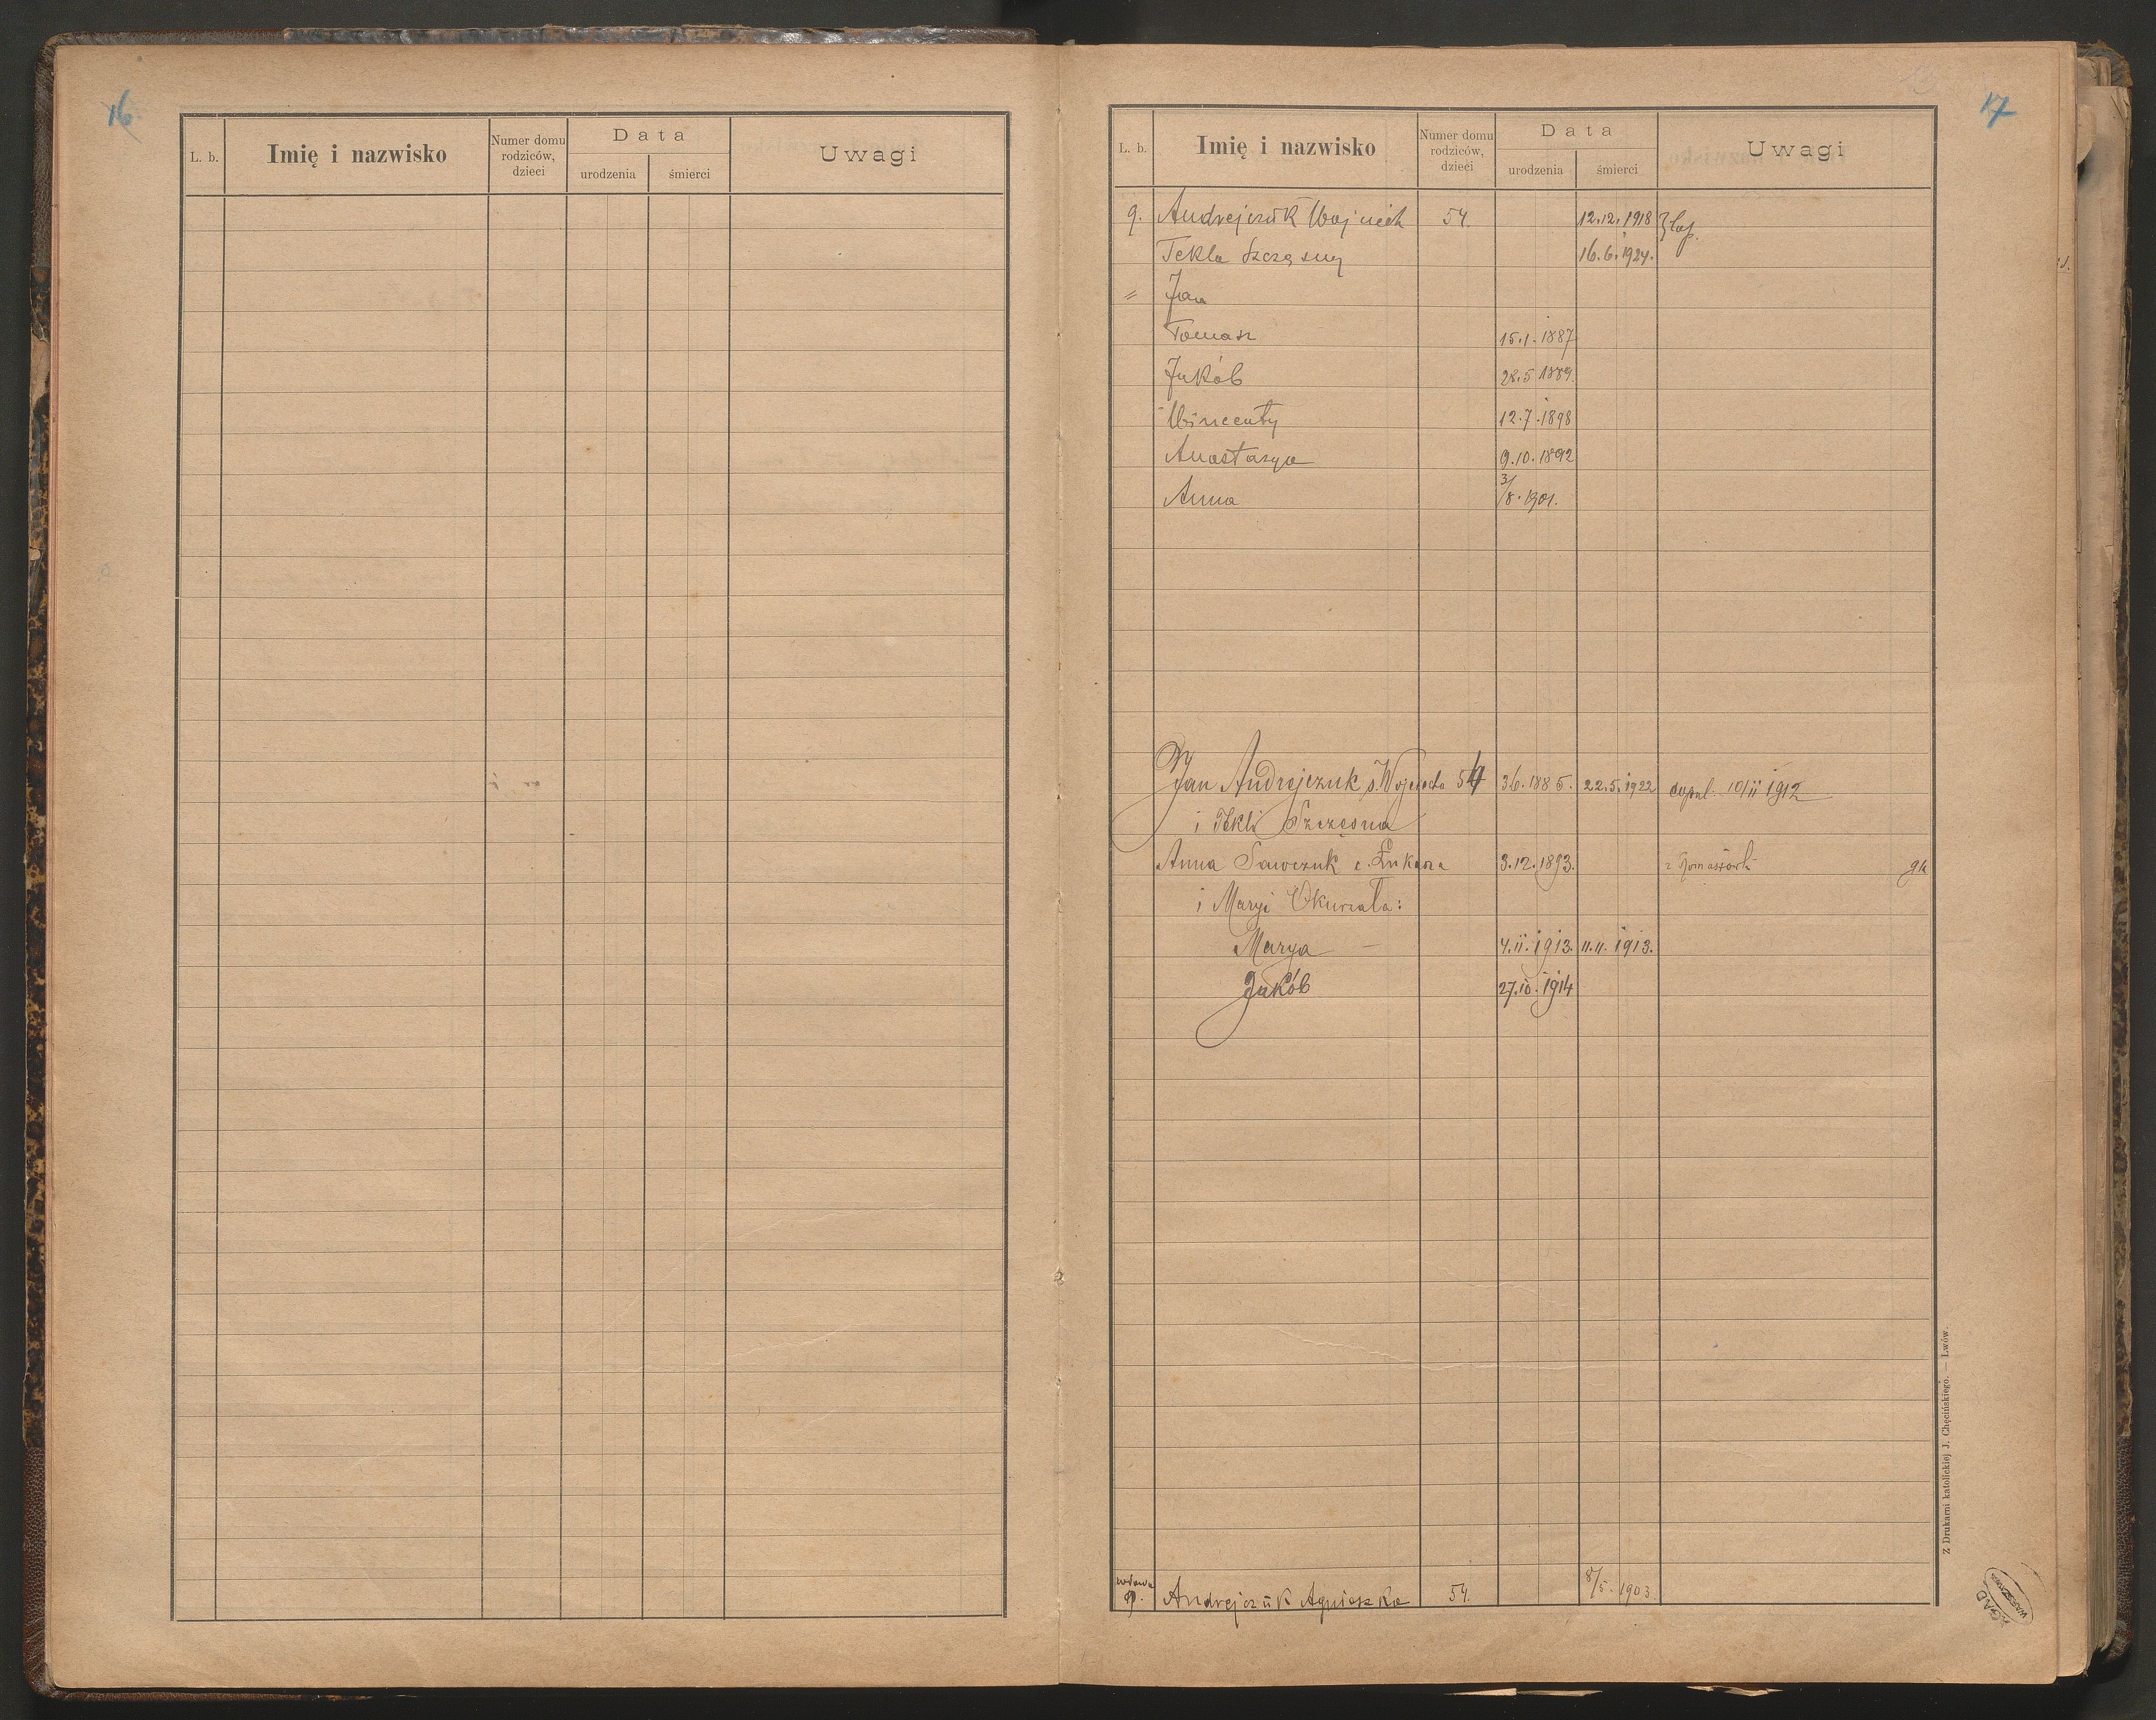 16
L. b.
Imię i nazwisko
Numer domu rodziców, dzieci
Data
urodzenia
śmierci
Uwagi
17
L. b.
Imię i nazwisko
Numer domu rodziców, dzieci
Data
urodzenia
śmierci
Uwagi
9. Andrejczŭk Wojciech 54. 12.12.1918
Tekla Szczęsny 16.6.1924.
" Jan
Tomasz 15.1.1887
Jakób 28.5 1889.
Wincenty 12.7.1898
Anastazya 9.10.1892
Anna 3/8.1901.
Jan Andrejczuk s. Wojciecha 54 3 6.1885. 22.5.1922 copul. 10/11 1912
i Tekli Szczęsna
Anna Sawczuk c. Łukasza 3.12.1893. z Romaszówki gk
i Maryi Okurzała:
Marya — 4.11.1913. 11.11.1913.
Jakób 27.10.1914
wdowa
9. Andrejczŭk Agnieszka 54. 8/5.1903.
Z Drukarni katolickiej J. Chęcińskiego. — Lwów.
AGAD
WARSZAWA